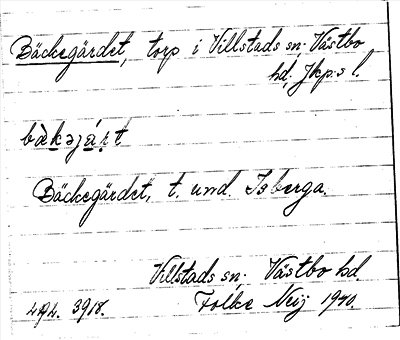 Bäckegärdet, torp i Villstads sn, Västbo
hd. Jkp:s l.
bàkəjárt
Bäckegärdet, t. und. Isberga.
Villstads sn, Västbo hd.
Folke Neij 1940.
3918.